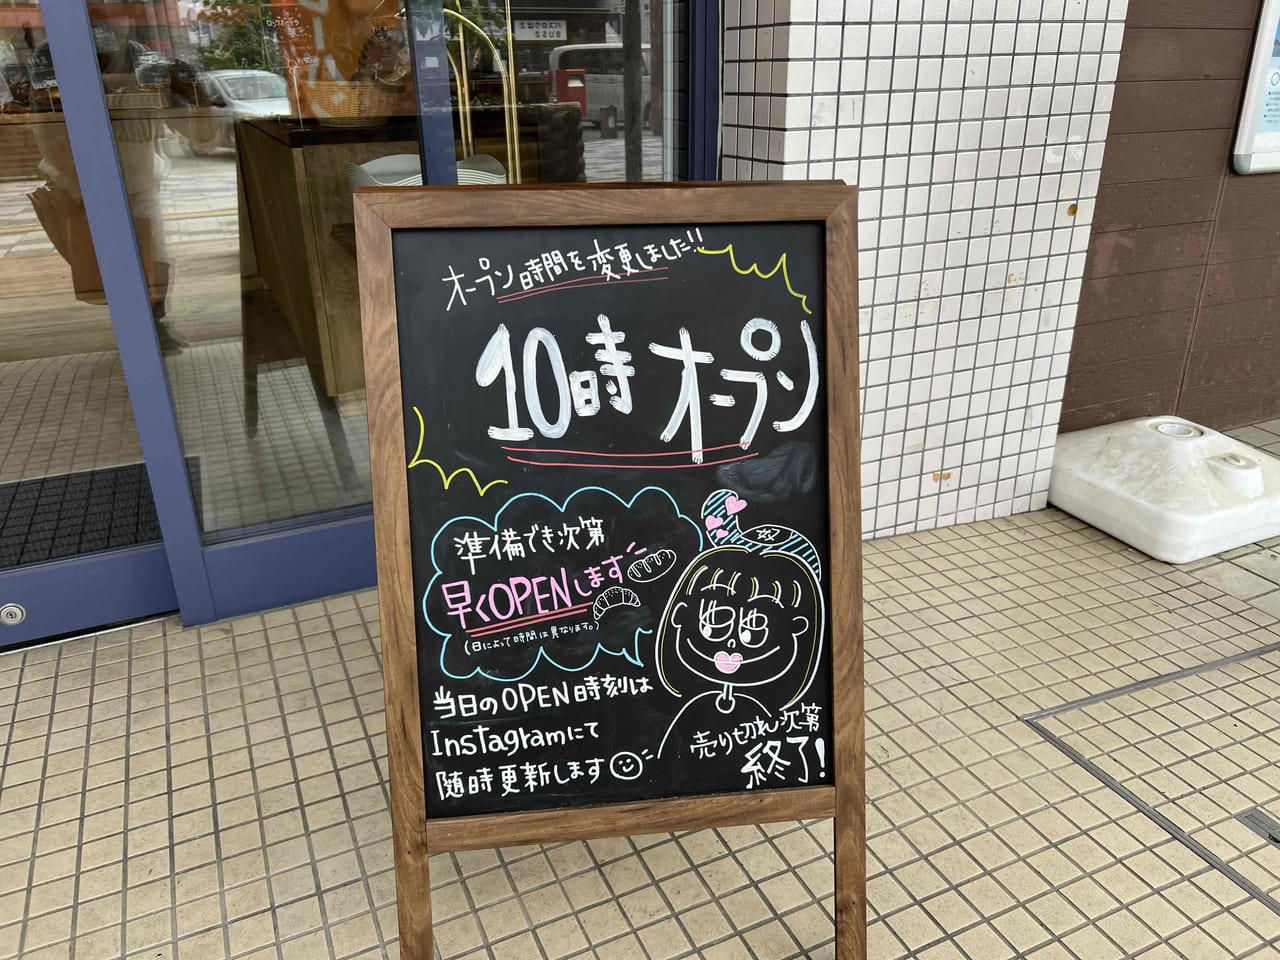 オープン時間を変更しました!!
10時オープン
準備でき次第
早くOPENします
(日によって時間は異なります。)
当日のOPEN時刻は
Instagramにて
随時更新します
売り切れ次第
終了!